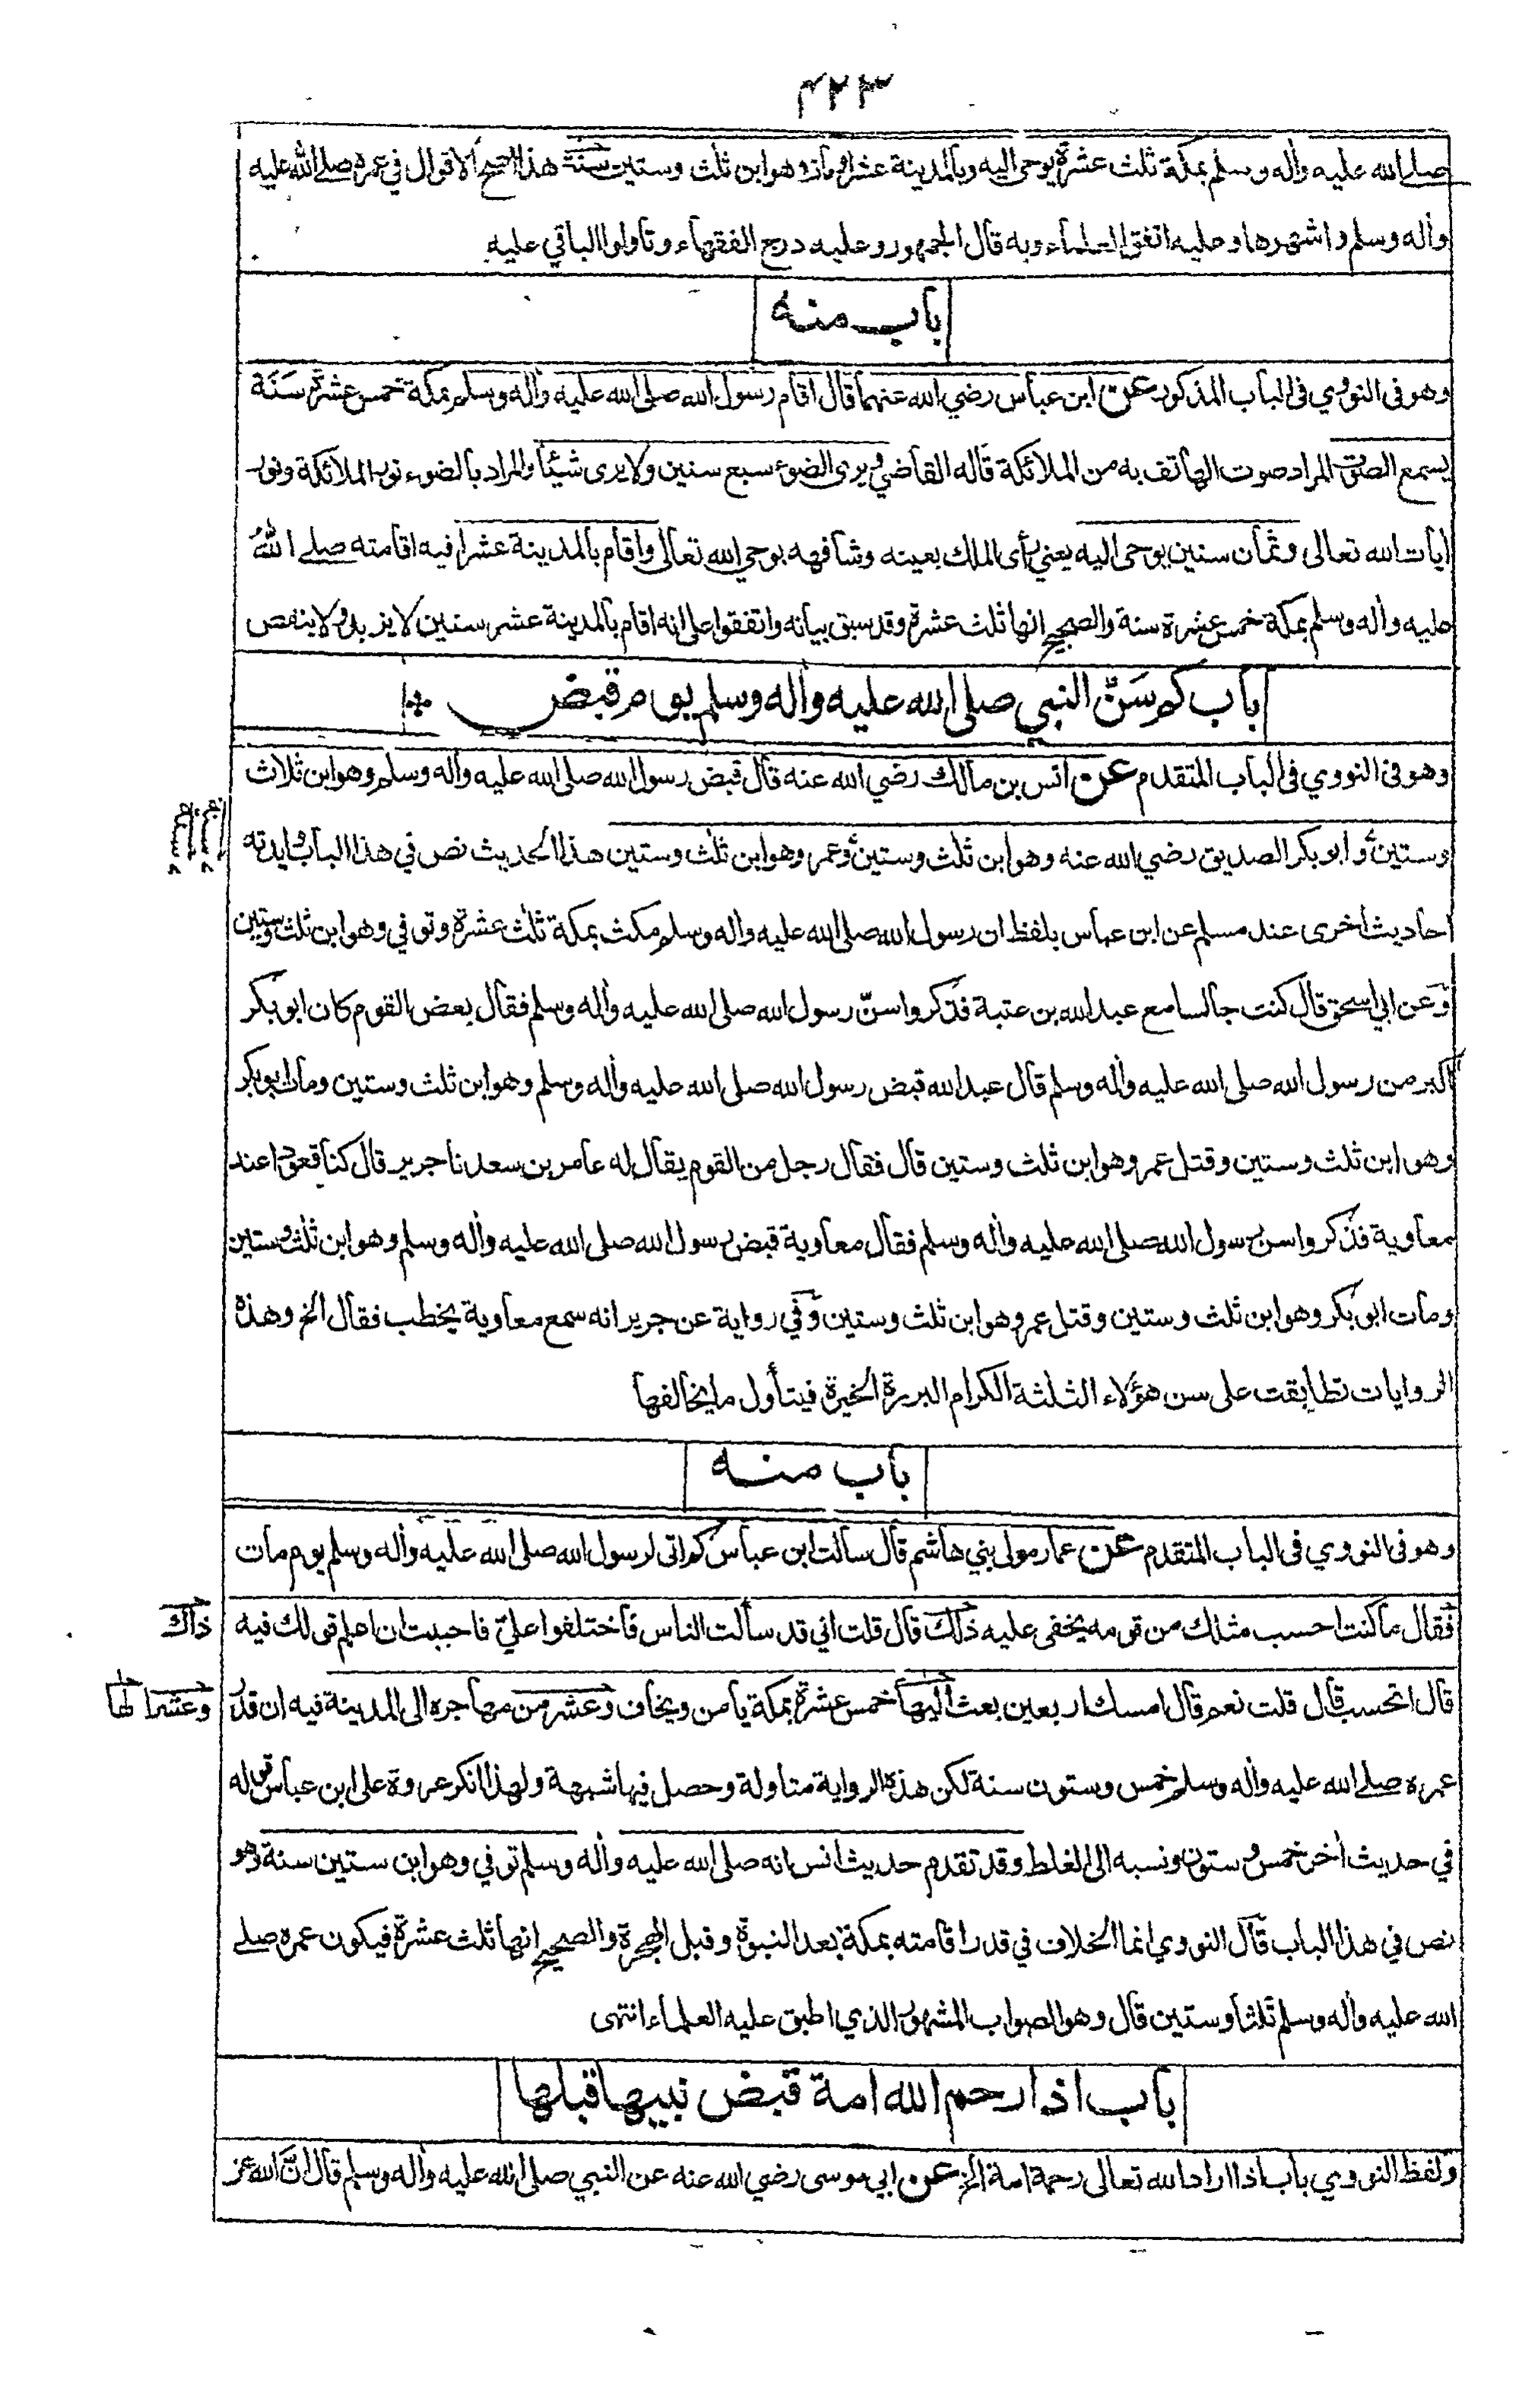 ٤٢٣
صلى الله عليه وأله وسلم بمكة ثلث عشرة يوحى اليه وبالمدينة عشرا ومات وهو ابن ثلث وستين سنة هذا اصح الاقوال في عمره صلى الله عليه
وأله وسلم واشهرها وعليه اتفق العلماء وبه قال الجمهور وعليه درج الفقهاء وتاولوا الباقي عليه
باب منه
وهو فى النووي فى الباب المذكور عن ابن عباس رضي الله عنهما قال اقام رسول الله صلى الله عليه وأله وسلم بمكة خمس عشرة سَنَة
يسمع الصوت المراد صوت الهاتف به من الملائكة قاله القاضي ويرى الضوء سبع سنين ولا يرى شيئا والمراد بالضوء نور الملائكة ونور
أيات الله تعالى وثمان سنين يوحى اليه يعني رأى الملك بعينه وشافهه بوحي الله تعالى واقام بالمدينة عشرا فيه اقامته صلى اللهُ
عليه وأله وسلم بمكة خمس عشرة سنة والصحيح انها ثلث عشرة وقد سبق بيانه واتفقوا على انه اقام بالمدينة عشر سنين لا يزيد ولا ينقص
باب كم سَنّ النبي صلى الله عليه وأله وسلم يوم قبض
وهو فى النووي فى الباب المتقدم عن انس بن مالك رضي الله عنه قال قبض رسول الله صلى الله عليه وأله وسلم وهو ابن ثلاث
وستين وابو بكر الصديق رضي الله عنه وهو ابن ثلث وستين وعمر وهو ابن ثلث وستين هذا الحديث نص في هذا الباب وايدته
أحاديث أخرى عند مسلم عن ابن عباس بلفظ ان رسول الله صلى الله عليه وأله وسلم مكث بمكة ثلث عشرة وتوفي وهو ابن ثلث وستين
وعن ابي اسحق قال كنت جالسا مع عبد الله بن عتبة فذكروا سنّ رسول الله صلى الله عليه وأله وسلم فقال بعض القوم كان ابو بكر
اكبر من رسول الله صلى الله عليه وأله وسلم قال عبد الله قبض رسول الله صلى الله عليه وأله وسلم وهو ابن ثلث وستين ومات ابو بكر
وهو ابن ثلث وستين وقتل عمر وهو ابن ثلث وستين قال فقال رجل من القوم يقال له عامر بن سعد نا جرير قال كنا قعودا عند
معاوية فذكروا سن رسول الله صلى الله عليه وأله وسلم فقال معاوية قبض رسول الله صلى الله عليه وأله وسلم وهو ابن ثلث وستين
ومات ابو بكر وهو ابن ثلث وستين وقتل عمر وهو ابن ثلث وستين وفي رواية عن جرير انه سمع معاوية يخطب فقال الخ وهذه
الروايات تطابقت على سن هؤلاء الثلثة الكرام البررة الخيرة فيتأول ما يخالفها
باب منه
وهو فى النووي فى الباب المتقدم عن عمار مولى بني هاشم قال سالت ابن عباس كم اتى لرسول الله صلى الله عليه وأله وسلم يوم مات
فقال ما كنت احسب مثلك من قومه يخفى عليه ذلك قال قلت اني قد سألت الناس فاختلفوا عليّ فاحببت ان اعلم قولك فيه
ذاك
قال اتحسب قال قلت نعم قال امسك اربعين بعث اليها خمس عشرة بمكة يامن ويخاف وعشر من مهاجره الى المدينة فيه ان قدر
وعشرا لها
عمره صلى الله عليه وأله وسلم خمس وستون سنة لكن هذه الرواية متاولة وحصل فيها شبهة ولهذا انكر عروة على ابن عباس قوله
في حديث أخر خمس وستون ونسبه الى الغلط وقد تقدم حديث انس انه صلى الله عليه وأله وسلم توفي وهو ابن ستين سنة وهو
نص في هذا الباب قال النووي انما الخلاف في قدر اقامته بمكة بعد النبوة وقبل الهجرة والصحيح انها ثلث عشرة فيكون عمره صلى
الله عليه وأله وسلم ثلثا وستين قال وهو الصواب المشهور الذي اطبق عليه العلماء انتهى
باب اذا رحم الله امة قبض نبيها قبلها
ولفظ النووي باب اذا اراد الله تعالى رحمة امة الخ عن ابي موسى رضي الله عنه عن النبي صلى الله عليه وأله وسلم قال انَّ الله عز